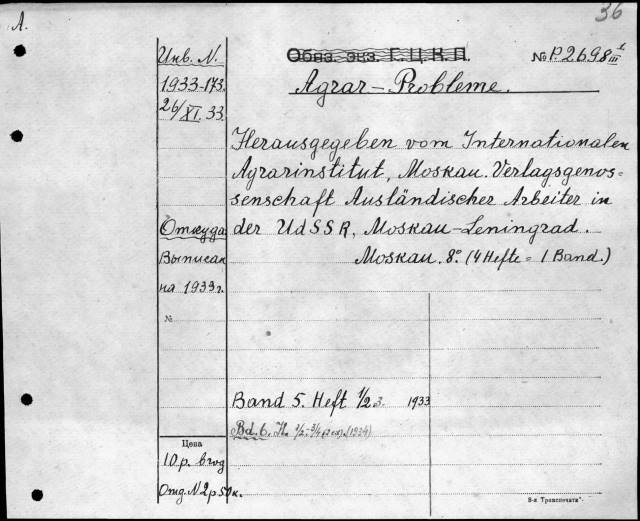 36
А.
Инв. N.
1933-173.
26/XI. 33.
Обяз. экз. Г.Ц.К.П.
№ P.2698 III
Agrar-Probleme.
Herausgegeben vom Internationalen
Agrarinstitut, Moskau. Verlagsgenos=
senschaft Ausländischer Arbeiter in
der UdSSR, Moskau-Leningrad.
Moskau. 8° (4 Hefte = 1 Band.)
Откуда
Выписан
на 1933 г.
№
Band 5. Heft 1/2 3. 1933
Bd. 6. H. 1/2-3/4 (1934)
Цена
10 р. в год
Отд. N 2 р 50 к.
8-я Транспечати"